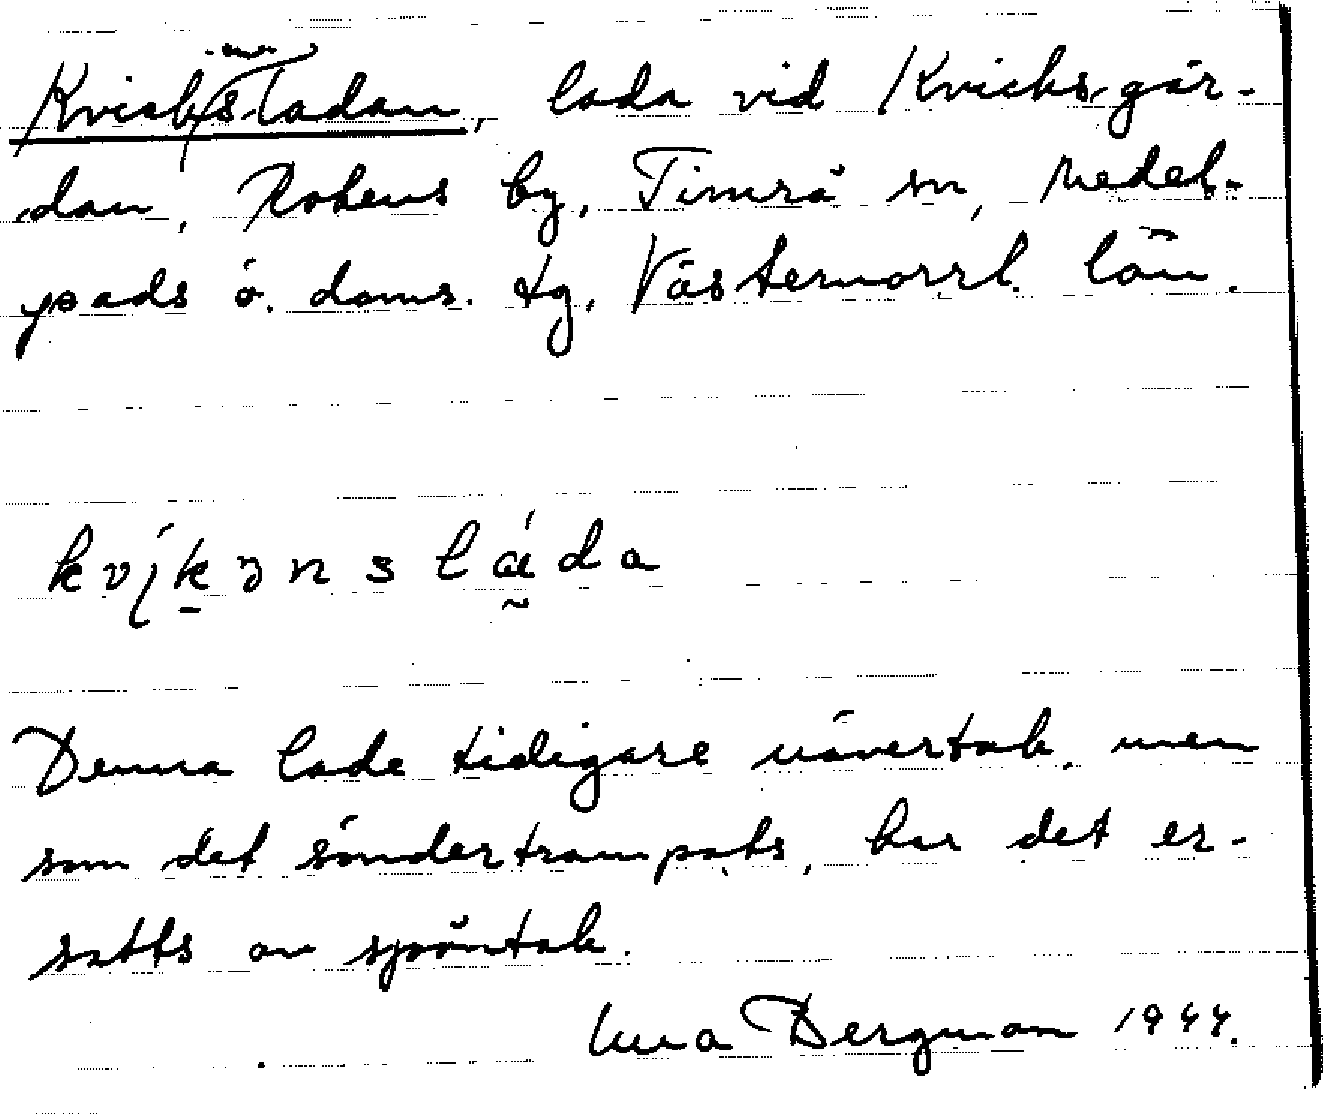 Kvickensladan, lada vid Kvicks-går-
dan, by, Timrå sn, Medel-
pads ö. doms. tg, Västernorrl. län.
kvíkənsláda
Denna lade tidigare nävertak, men
som det söndertrampats, har det er-
satts av spåntak.
Bergman 1944.